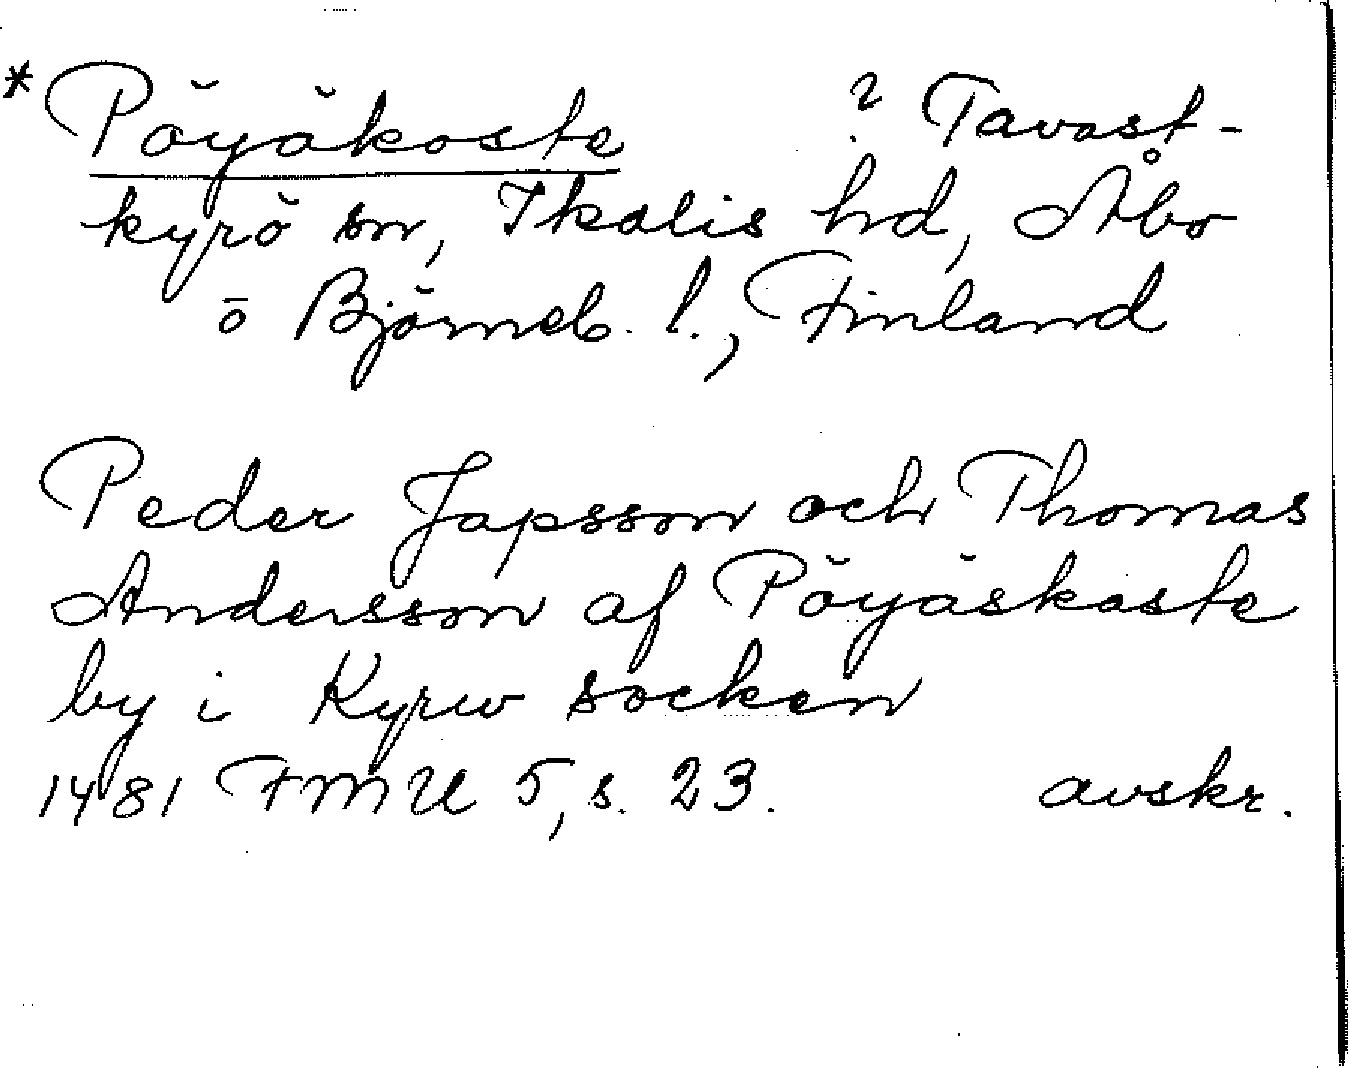 *Pöyäkoste ? Tavast-
kyrö sn, Ikalis hd, Åbo
o Björneb. l., Finland
Peder Japsson och Thomas
Andersson af Pöyäskaste
by i Kyrw socken
1481 FMU 5, s. 23. avskr.